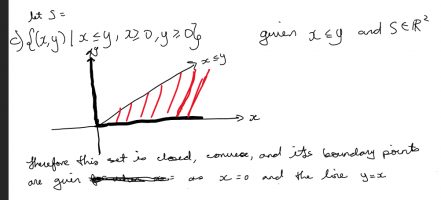 let S =
c) {(x,y) | x ≤ y, x ≥ 0, y ≥ 0} given x ≤ y and S ∈ ℝ²
y
x ≤ y
x
therefore this set is closed, convex, and its boundary points
are given as x = 0 and the line y = x